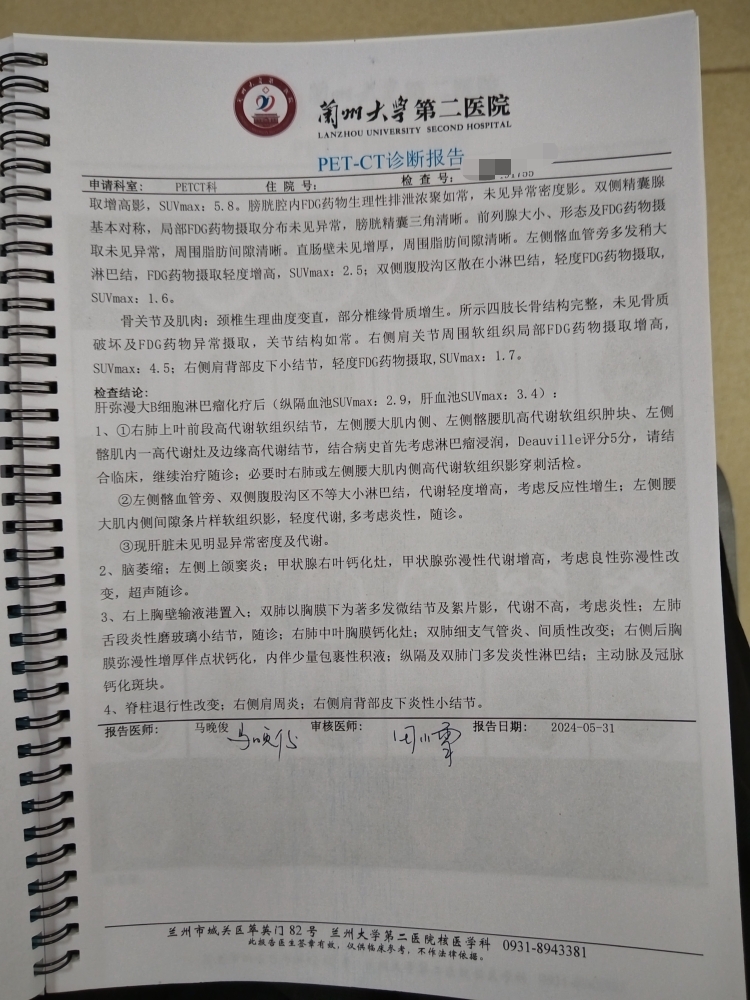 兰州大学第二医院
LANZHOU UNIVERSITY SECOND HOSPITAL
PET-CT诊断报告
申请科室: PETCT科 住院号: 检查号:
取增高影，SUVmax: 5.8。膀胱腔内FDG药物生理性排泄浓聚如常，未见异常密度影。双侧精囊腺
基本对称，局部FDG药物摄取分布未见异常，膀胱精囊三角清晰。前列腺大小、形态及FDG药物摄
取未见异常，周围脂肪间隙清晰。直肠壁未见增厚，周围脂肪间隙清晰。左侧髂血管旁多发稍大
淋巴结，FDG药物摄取轻度增高，SUVmax: 2.5; 双侧腹股沟区散在小淋巴结，轻度FDG药物摄取,
SUVmax: 1.6。
骨关节及肌肉: 颈椎生理曲度变直，部分椎缘骨质增生。所示四肢长骨结构完整，未见骨质
破坏及FDG药物异常摄取，关节结构如常。右侧肩关节周围软组织局部FDG药物摄取增高,
SUVmax: 4.5; 右侧肩背部皮下小结节，轻度FDG药物摄取,SUVmax: 1.7。
检查结论:
肝弥漫大B细胞淋巴瘤化疗后（纵隔血池SUVmax: 2.9，肝血池SUVmax: 3.4）:
1、①右肺上叶前段高代谢软组织结节，左侧腰大肌内侧、左侧髂腰肌高代谢软组织肿块、左侧
髂肌内一高代谢灶及边缘高代谢结节，结合病史首先考虑淋巴瘤浸润，Deauville评分5分，请结
合临床，继续治疗随诊; 必要时右肺或左侧腰大肌内侧高代谢软组织影穿刺活检。
②左侧髂血管旁、双侧腹股沟区不等大小淋巴结，代谢轻度增高，考虑反应性增生; 左侧腰
大肌内侧间隙条片样软组织影，轻度代谢,多考虑炎性，随诊。
③现肝脏未见明显异常密度及代谢。
2、脑萎缩; 左侧上颌窦炎; 甲状腺右叶钙化灶，甲状腺弥漫性代谢增高，考虑良性弥漫性改
变，超声随诊。
3、右上胸壁输液港置入; 双肺以胸膜下为著多发微结节及絮片影，代谢不高，考虑炎性; 左肺
舌段炎性磨玻璃小结节，随诊; 右肺中叶胸膜钙化灶; 双肺细支气管炎、间质性改变; 右侧后胸
膜弥漫性增厚伴点状钙化，内伴少量包裹性积液; 纵隔及双肺门多发炎性淋巴结; 主动脉及冠脉
钙化斑块。
4、脊柱退行性改变; 右侧肩周炎; 右侧肩背部皮下炎性小结节。
报告医师: 马晚俊 马晚俊 审核医师: 报告日期: 2024-05-31
兰州市城关区萃英门82号 兰州大学第二医院核医学科 0931-8943381
此报告医生签章有效，仅供临床参考，不作法律依据。